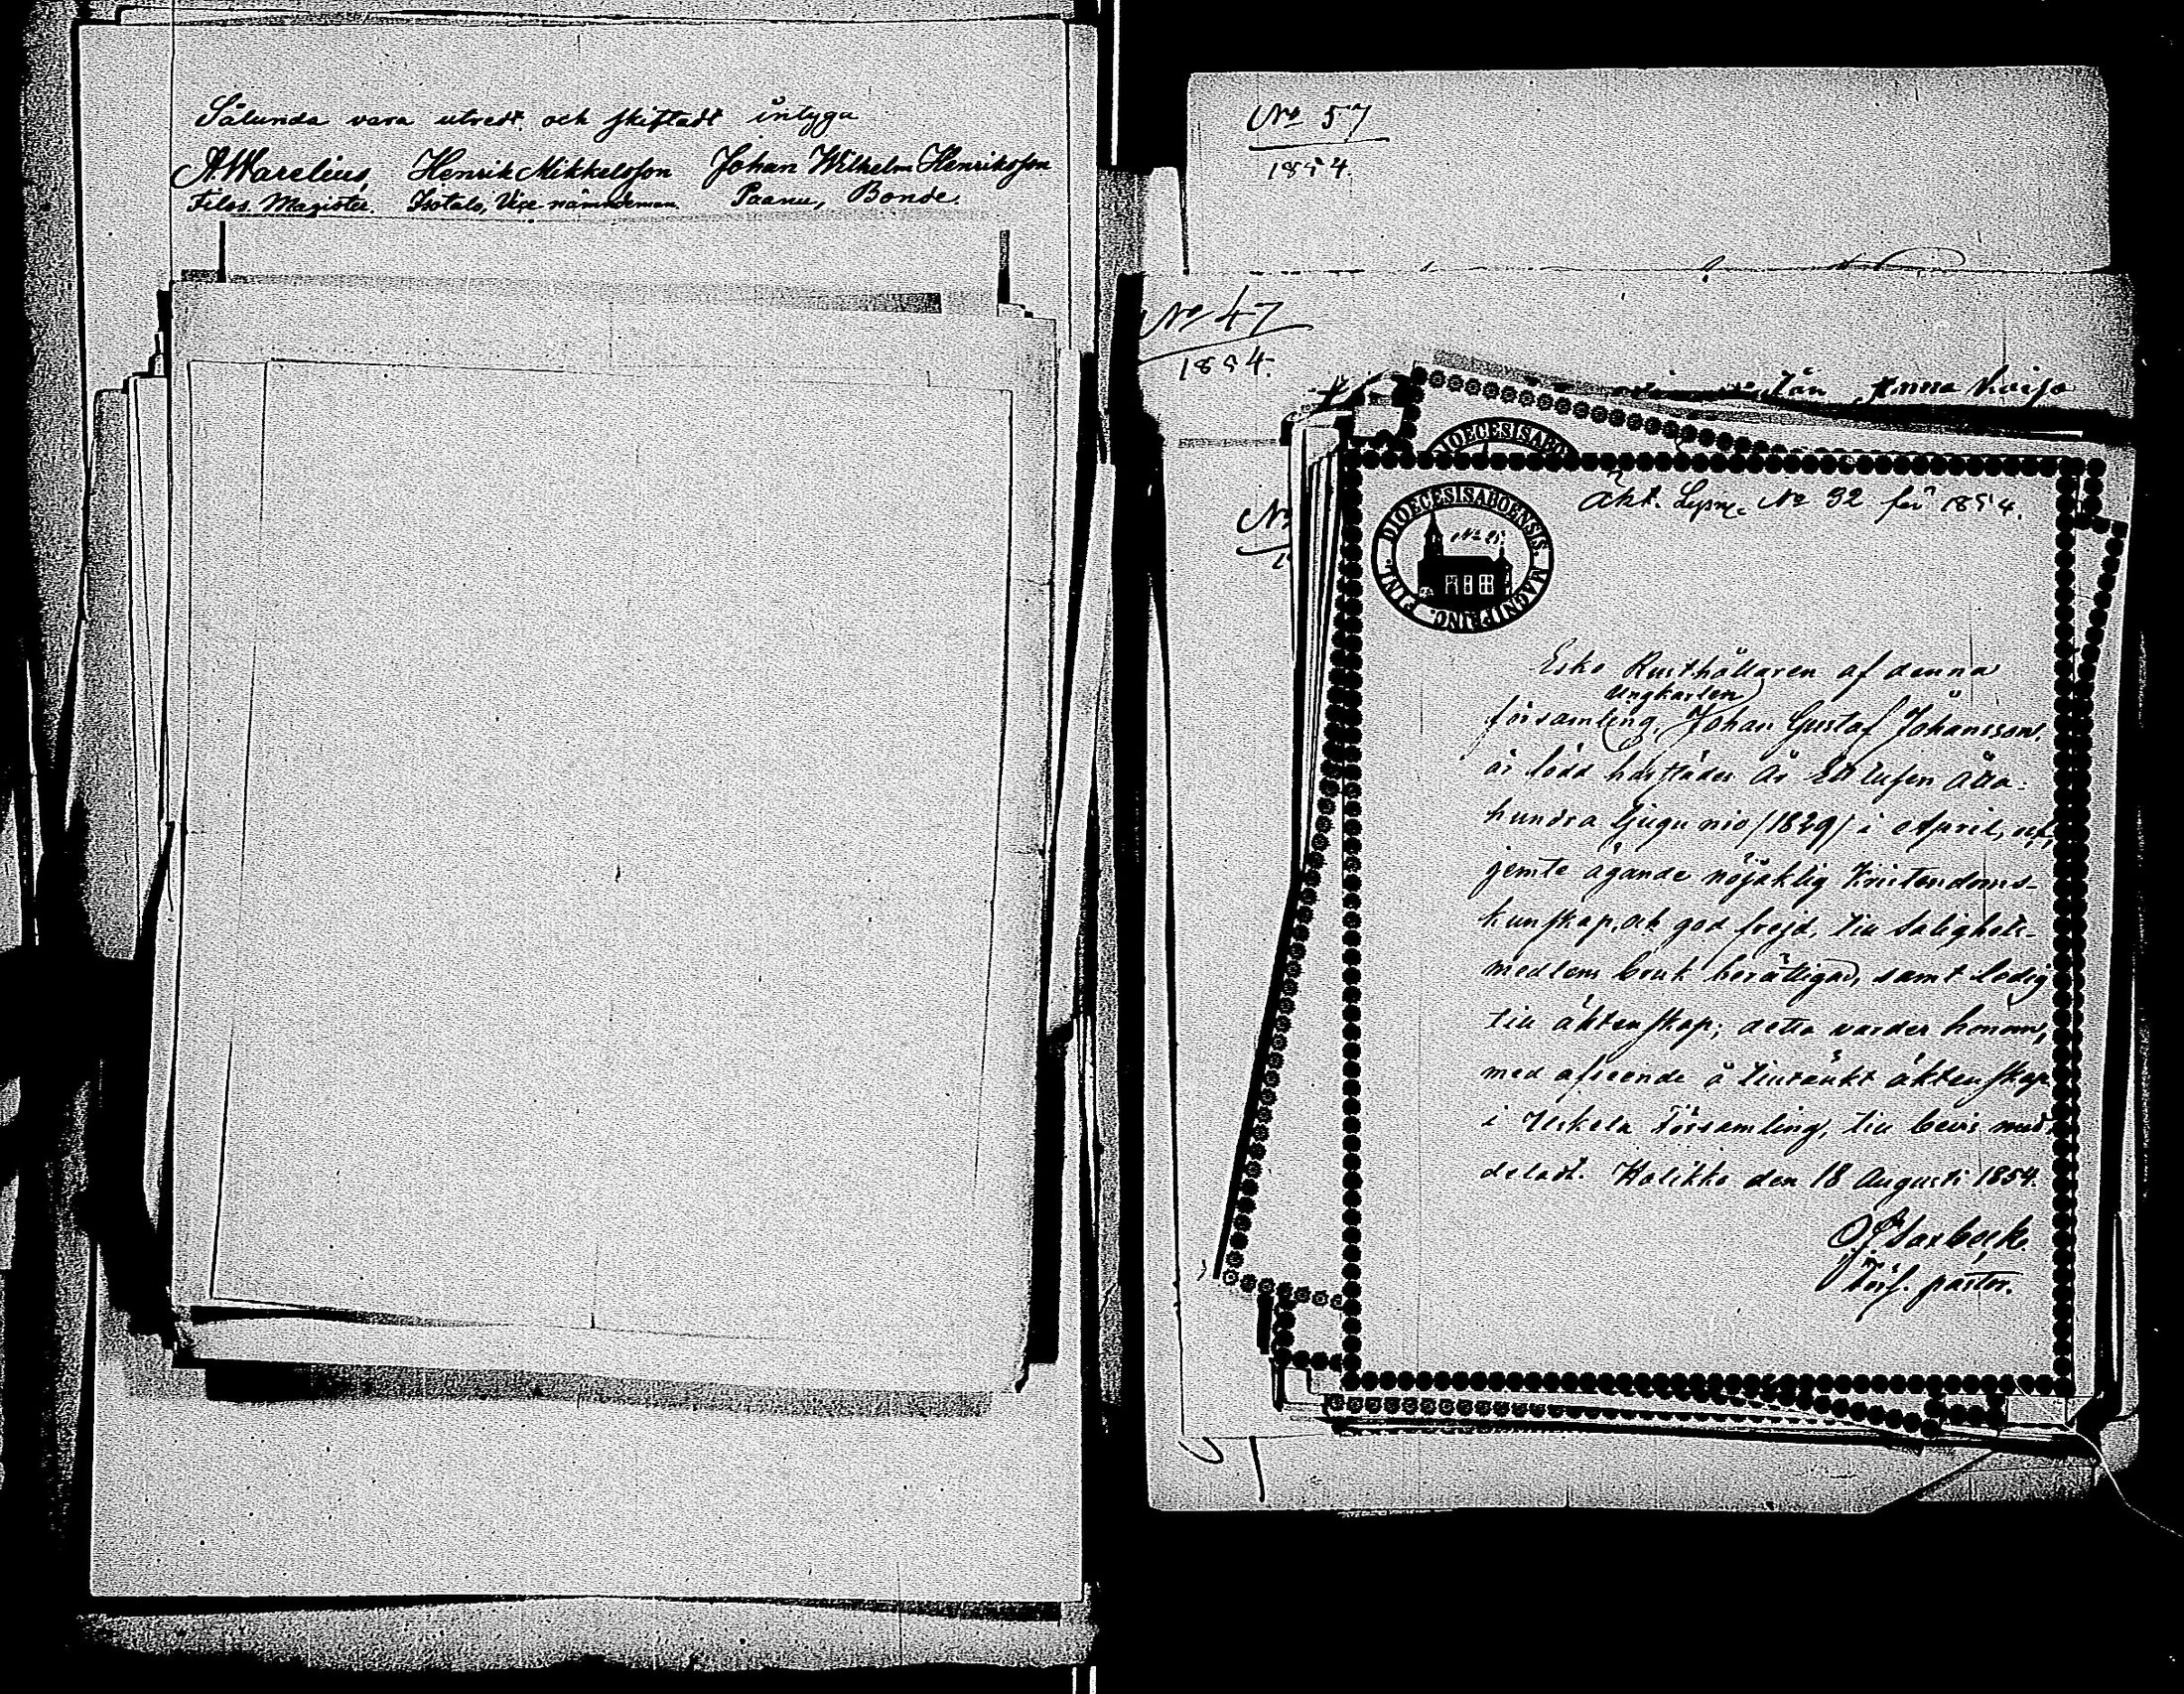 Sålunda vara utredt och skiftadt intyga
A. Warelius, Henrik Mikkelsson Johan Wilhelm Henriksson
Filos. Magister. Isotalo, Vice nämndeman. Paanu, Bonde.
No 57
1854.
No 47
1854.
Anna
DIOECESISABOE
Äkt. Lysn. No 32 för 1854.
DIOECESISABOENSIS. MAGNI PRINC. FINL.
No 25.
Esko Rusthållaren af denna
Ungkarlen
församling, Johan Gustaf Johansson,
är född härstädes År Ett tusen åtta-
hundra tjugu nio /1829/ i April, och,
jemte ägande nöjaktig Kristendoms-
kunskap, och god frejd, till salighets-
medlens bruk berättigad, samt ledig
till äktenskap; detta varder honom,
med afseende å tilltänkt äktenskap
i Uskela Församling, till bevis med-
deladt. Halikko den 18 Augusti 1854.
Förs. pastor.